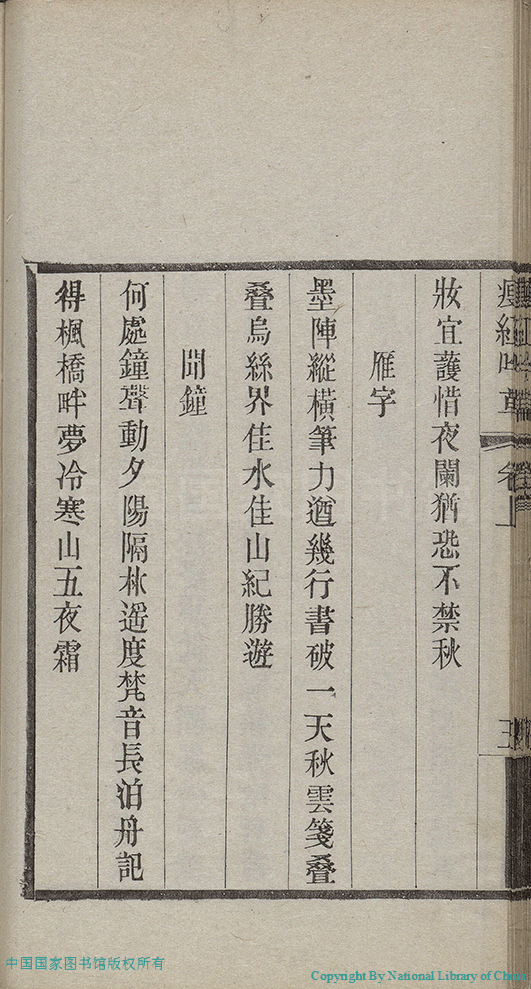 妝宜護惜夜闌猶恐不禁秋
雁字
墨陣縱橫筆力遒幾行書破一天秋雲箋疊
疊烏絲界佳水佳山紀勝遊
聞鐘
何處鐘聲動夕陽隔林遥度梵音長泊舟記
得楓橋畔夢冷寒山五夜霜
中国国家图书馆版权所有
Copyright By National Library of China